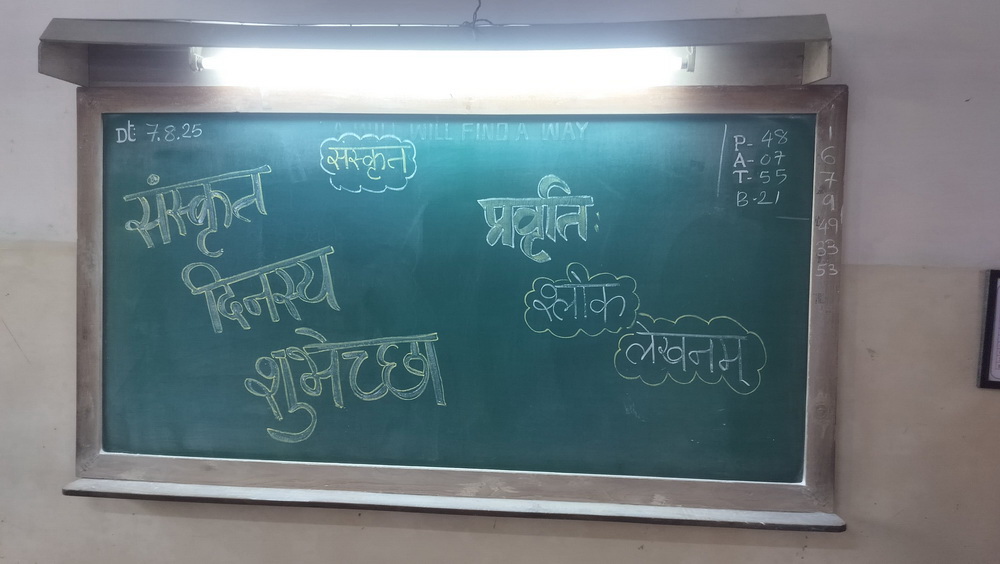 Dt: 7.8.25
WILL FIND A WAY
संस्कृत
संस्कृत
दिनस्य
शुभेच्छा
प्रवृति:
श्लोक
लेखनम्
P- 48
A- 07
T- 55
B-21
1
6
7
9
49
33
53